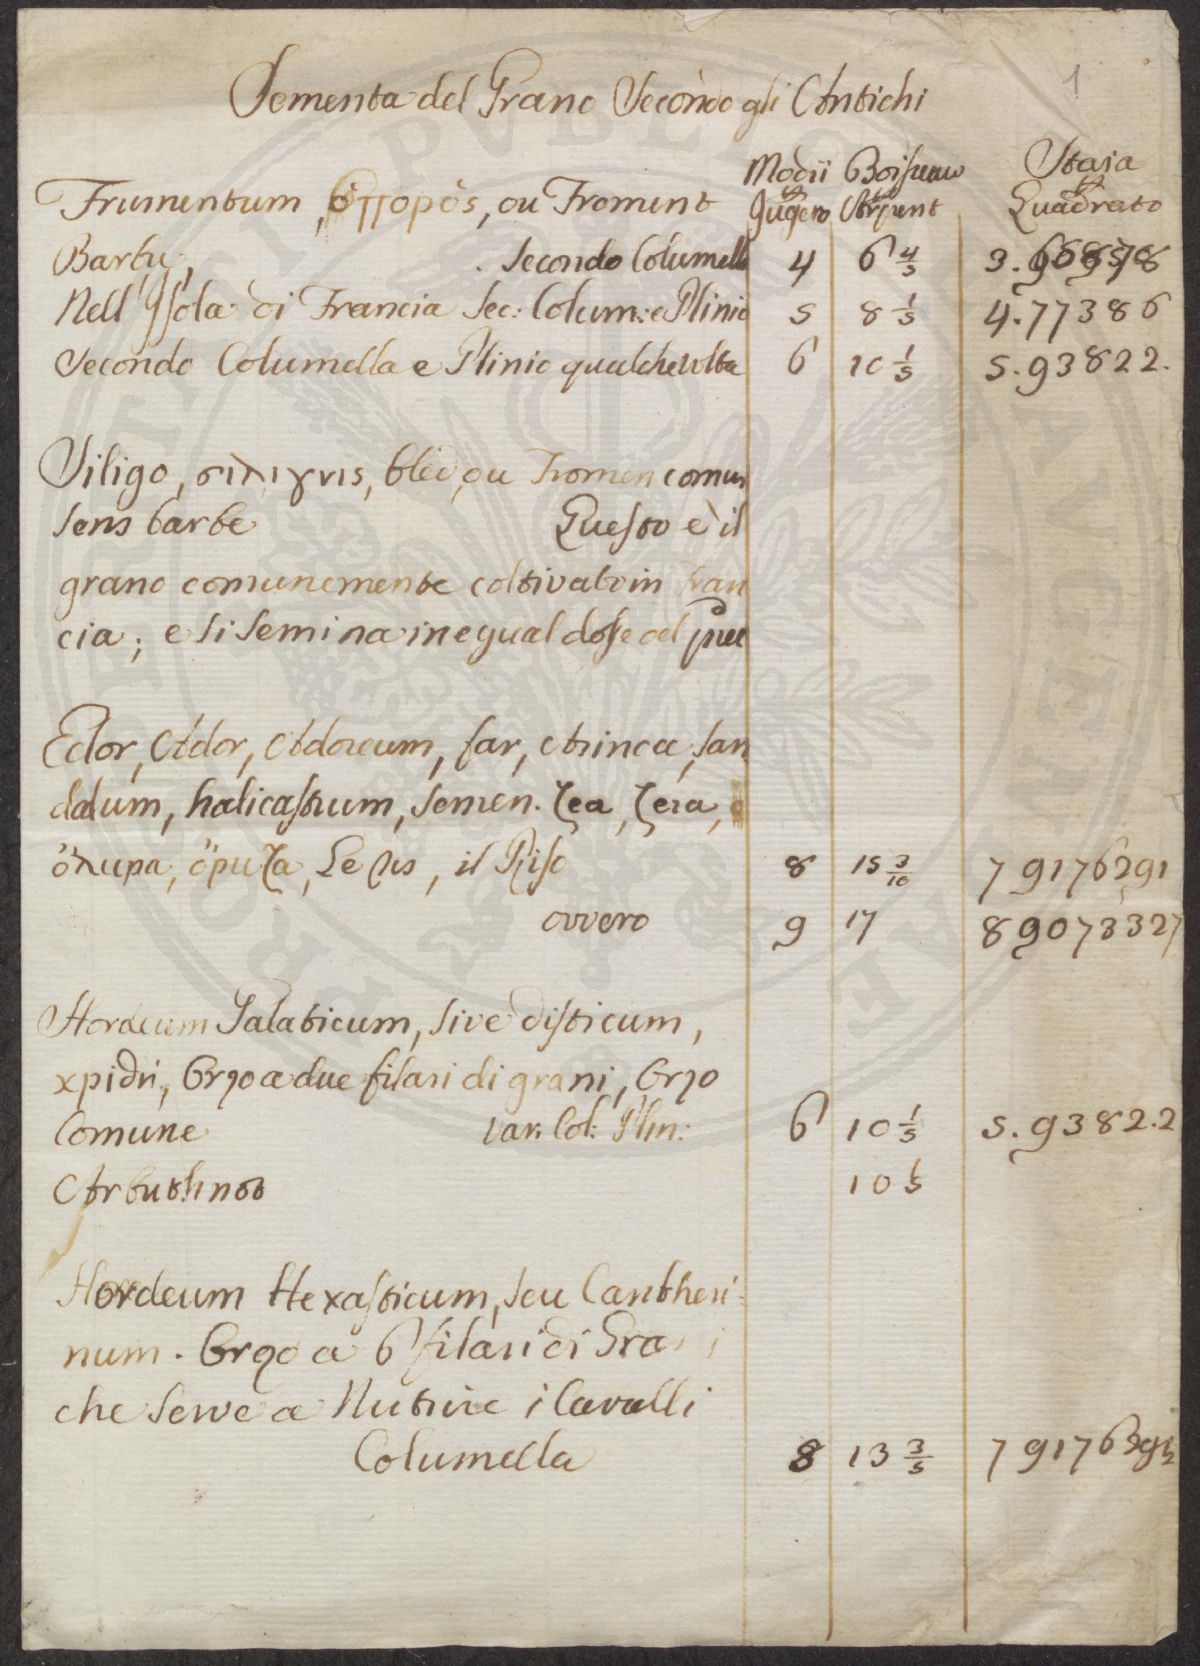 1
Sementa del Grano Secondo gli Antichi
Modii Boisseau Staja
Jugero Arpent Quadrato
Frumentum, ou Froment
Barbu, . Secondo Columella 4 6 4/5 3.
Nell'Isola di Francia Sec: Colum: e Plinio 5 8 1/5 4.77386
Secondo Columella e Plinio qualche volta 6 10 1/5 5.93822.
Siligo, σιλιγνις, bled, ou Fromen comun
sens barbe Questo è il
grano comunemente coltivato in Fran
cia; e si semina in egual dose del
Edor, Ador, Adoreum, far, Arinca, San
dalum, halicastrum, Semen. ζea, ζeia,
ὄλυρα, ὄρυζα, Le Ris, il Riso 8 15 3/10 79176291
ovvero 9 17 89073327
Hordeum Galaticum, sive disticum,
Orzo a due filari di grani, Orzo
Comune Var: Col: Plin: 6 10 1/5 5.9382.2
Arbuthnot 10 1/5
Hordeum Hexasticum, seu Cantheri-
num. Orzo a 6 filari di Grani
che serve a Nutrire i Cavalli
Columella 8 13 3/5